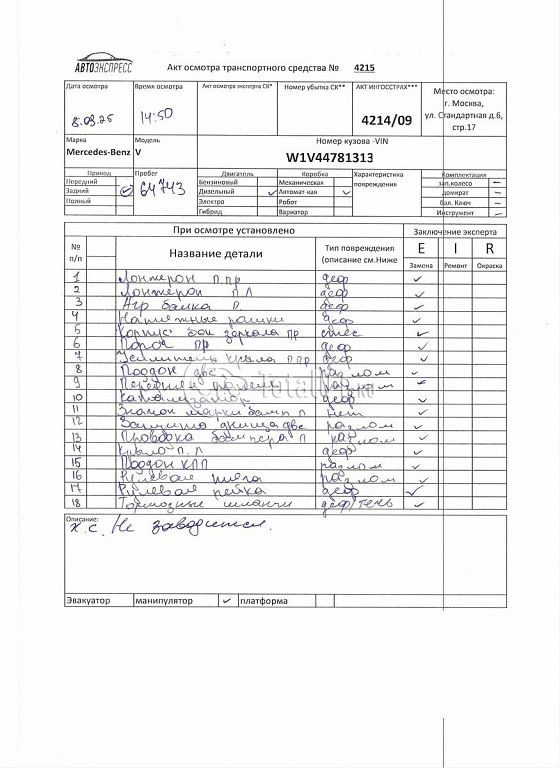 АВТОЭКСПРЕСС
Акт осмотра транспортного средства № 4215
Дата осмотра Время осмотра Акт осмотра эксперта СК* Номер убытка СК** АКТ ИНГОССТРАХ*** Место осмотра:
14:50 4214/09 г. Москва,
ул. Стандартная д.6,
стр.17
Марка Модель Номер кузова -VIN
Mercedes-Benz V W1V44781313
Привод Пробег Двигатель Коробка Характеристика повреждения Комплектация
Передний 64743 Бензиновый Механическая зап.колесо –
Задний ✓ Дизельный ✓ Автомат-кая ✓ домкрат –
Полный Электро Робот бал. Ключ –
Гибрид Вариатор Инструмент –
При осмотре установлено Заключение эксперта
№ п/п Название детали Тип повреждения (описание см.Ниже E I R
Замена Ремонт Окраска
1 Лонжерон п.пр деф ✓
2 Лонжерон п.л деф ✓
3 балка п деф ✓
4 Натяжные ролики деф ✓
5 Корпус бок зеркала пр ✓
6 Порог пр деф ✓
7 Усилитель крыла ппр деф ✓
8 Поддон двс разлом ✓
9 разлом ✓
10 Катализатор деф ✓
11 Значок марки бамп п нет ✓
12 Защита днища двс разлом ✓
13 Проводка бампера п разлом ✓
14 Крыло п.л деф ✓
15 Поддон КПП разлом ✓
16 Рулевая тяга разлом ✓
17 Рулевая рейка деф ✓
18 Тормозные шланги деф/течь ✓
Описание:
х.с. Не заводится.
Эвакуатор манипулятор ✓ платформа